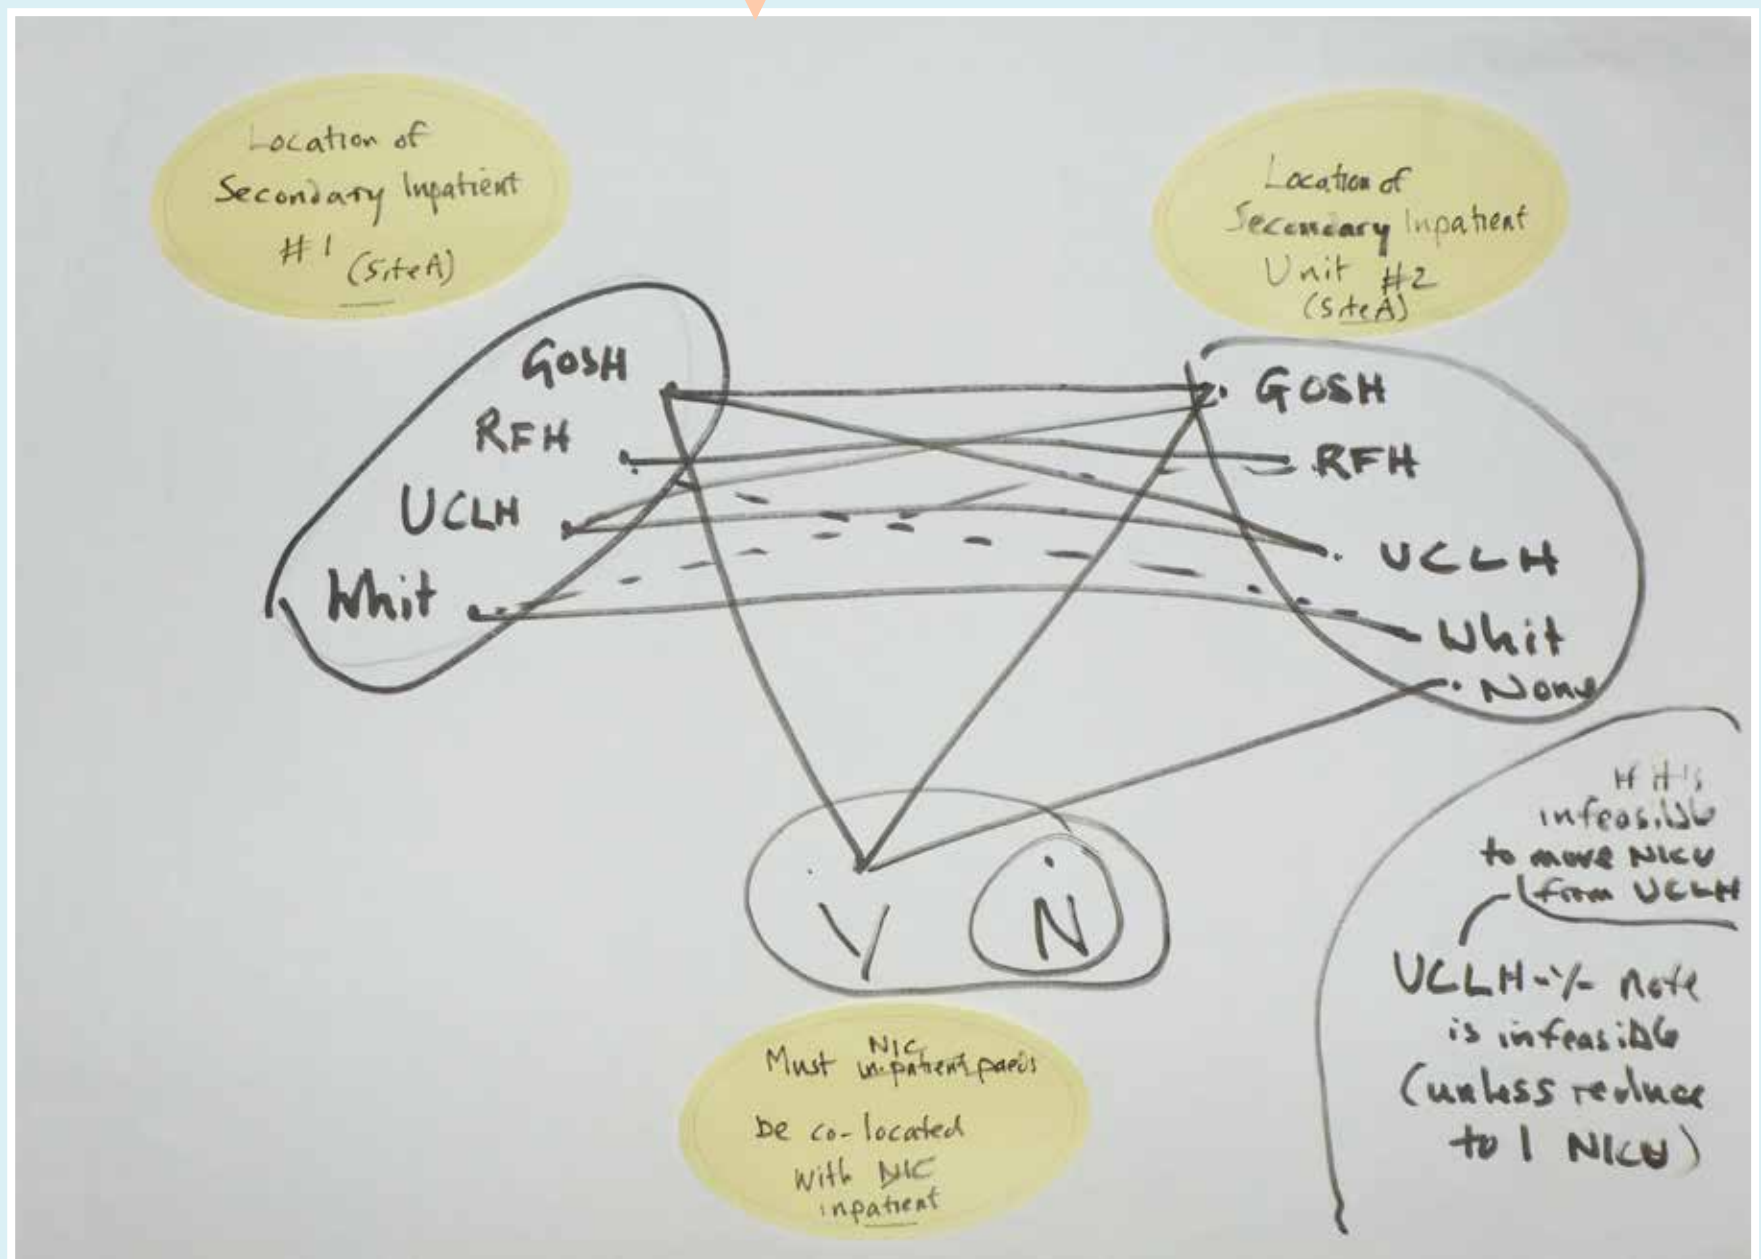 Location of
Secondary Inpatient
#1 (Site A)
Location of
Secondary Inpatient
Unit #2
(Site A)
GOSH
RFH
UCLH
Whit
GOSH
RFH
UCLH
Whit
None
Y N
Must NIC inpatient paeds
be co-located
with NIC
inpatient
If it's
infeasible
to move NICU
from UCLH
UCLH -
note
is infeasible
(unless reduce
to 1 NICU)